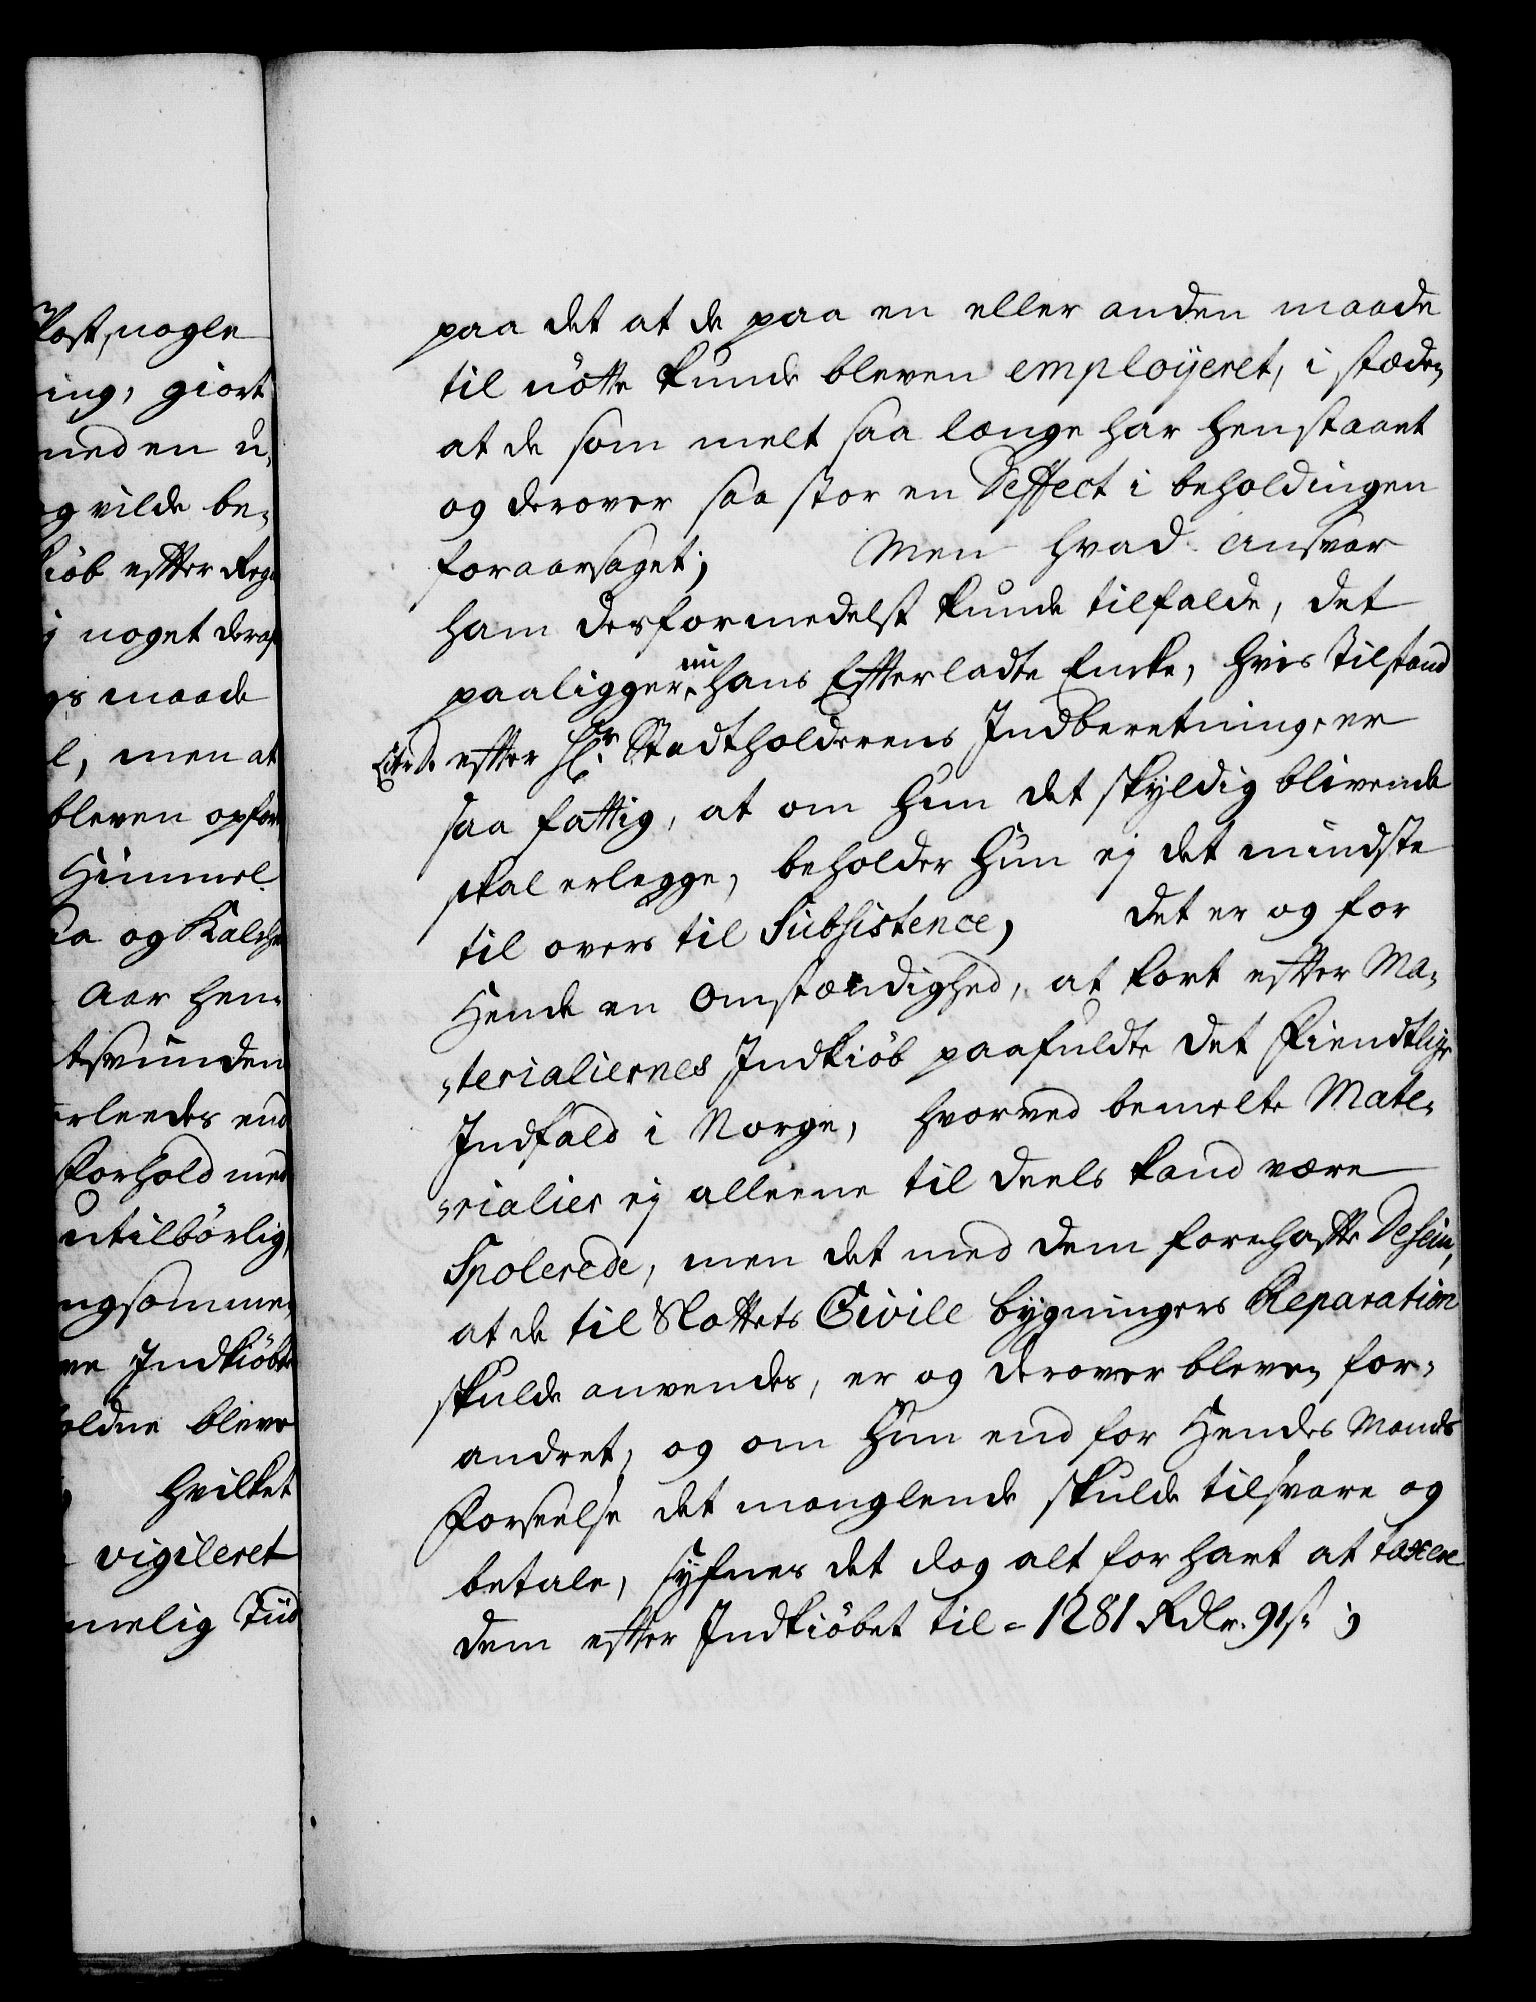 Kost, nogle
ing, giort
med en u-
og vilde be-
kiöb effter Reg
j noget deraf
gs maade
l, men at
bleven opfør
Himmel
aa og Kalch
Aar hen-
tsvunden
erleedes end
Forhold med
utilbörlig,
ngsomme
ne Indkiöbte
oldne bleve
hvilket
vigileret
melig Tiid
paa det at de paa en eller anden maade
til nötte kunde bleven employeret, i stæden
at de som melt saa længe har henstaaet
og derover saa stor en Deffect i beholdingen
foraarsaget; Men hvad ansvar
ham desformedelst kunde tilfalde, det
paaligger nu hans Effterladte Encke, hvis Tilstand
Litr: D. effter Hr. Stadtholderens Indberetning, er
saa fattig, at om Hun det skyldig blivende
skal erlegge, beholder Hun ej det mindste
til overs til Subsistence, det er og for
Hende en Omstændighed, at kort effter Ma-
-terialiernes Indkiöb paafuldte det Fiendtlige
Indfald i Norge, hvorved bemelte Mate-
-rialier ej alleene til deels kand være
Spolerede, men det med dem forehaffte Desein,
at de til Slottets Civile bygningers Reparation
skulde anvendes, er og derover bleven for-
andret, og om Hun end for Hendes Mands
Forseelse det manglende skulde tilsvare og
betale, syfnes det dog alt for hart at taxere
dem effter Indkiöbet til = 1281 Rdlr. 91 s;